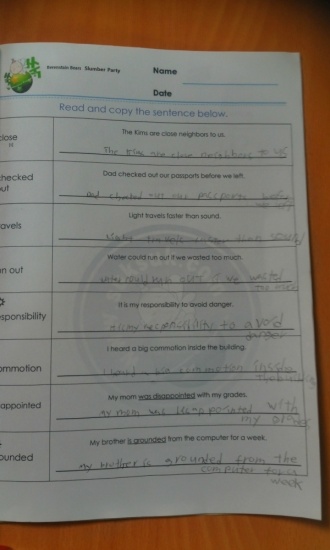 Berenstain Bears Slumber Party
Name
Date
Read and copy the sentence below.
close
The Kims are close neighbors to us.
The Kims are close neighbors to us
checked
out
Dad checked out our passports before we left.
Dad checked out our passports before
we left
ravels
Light travels faster than sound.
sound
un out
Water could run out if we wasted too much.
Water could run out if we wasted
too much
esponsibility
It is my responsibility to avoid danger.
It is my responsibility to avoid
danger
ommotion
I heard a big commotion inside the building.
I heard a big commotion inside
the building
appointed
My mom was disappointed with my grades.
my mom was disappointed with
my grades
ounded
My brother is grounded from the computer for a week.
my brother is grounded from the
computer for a
week